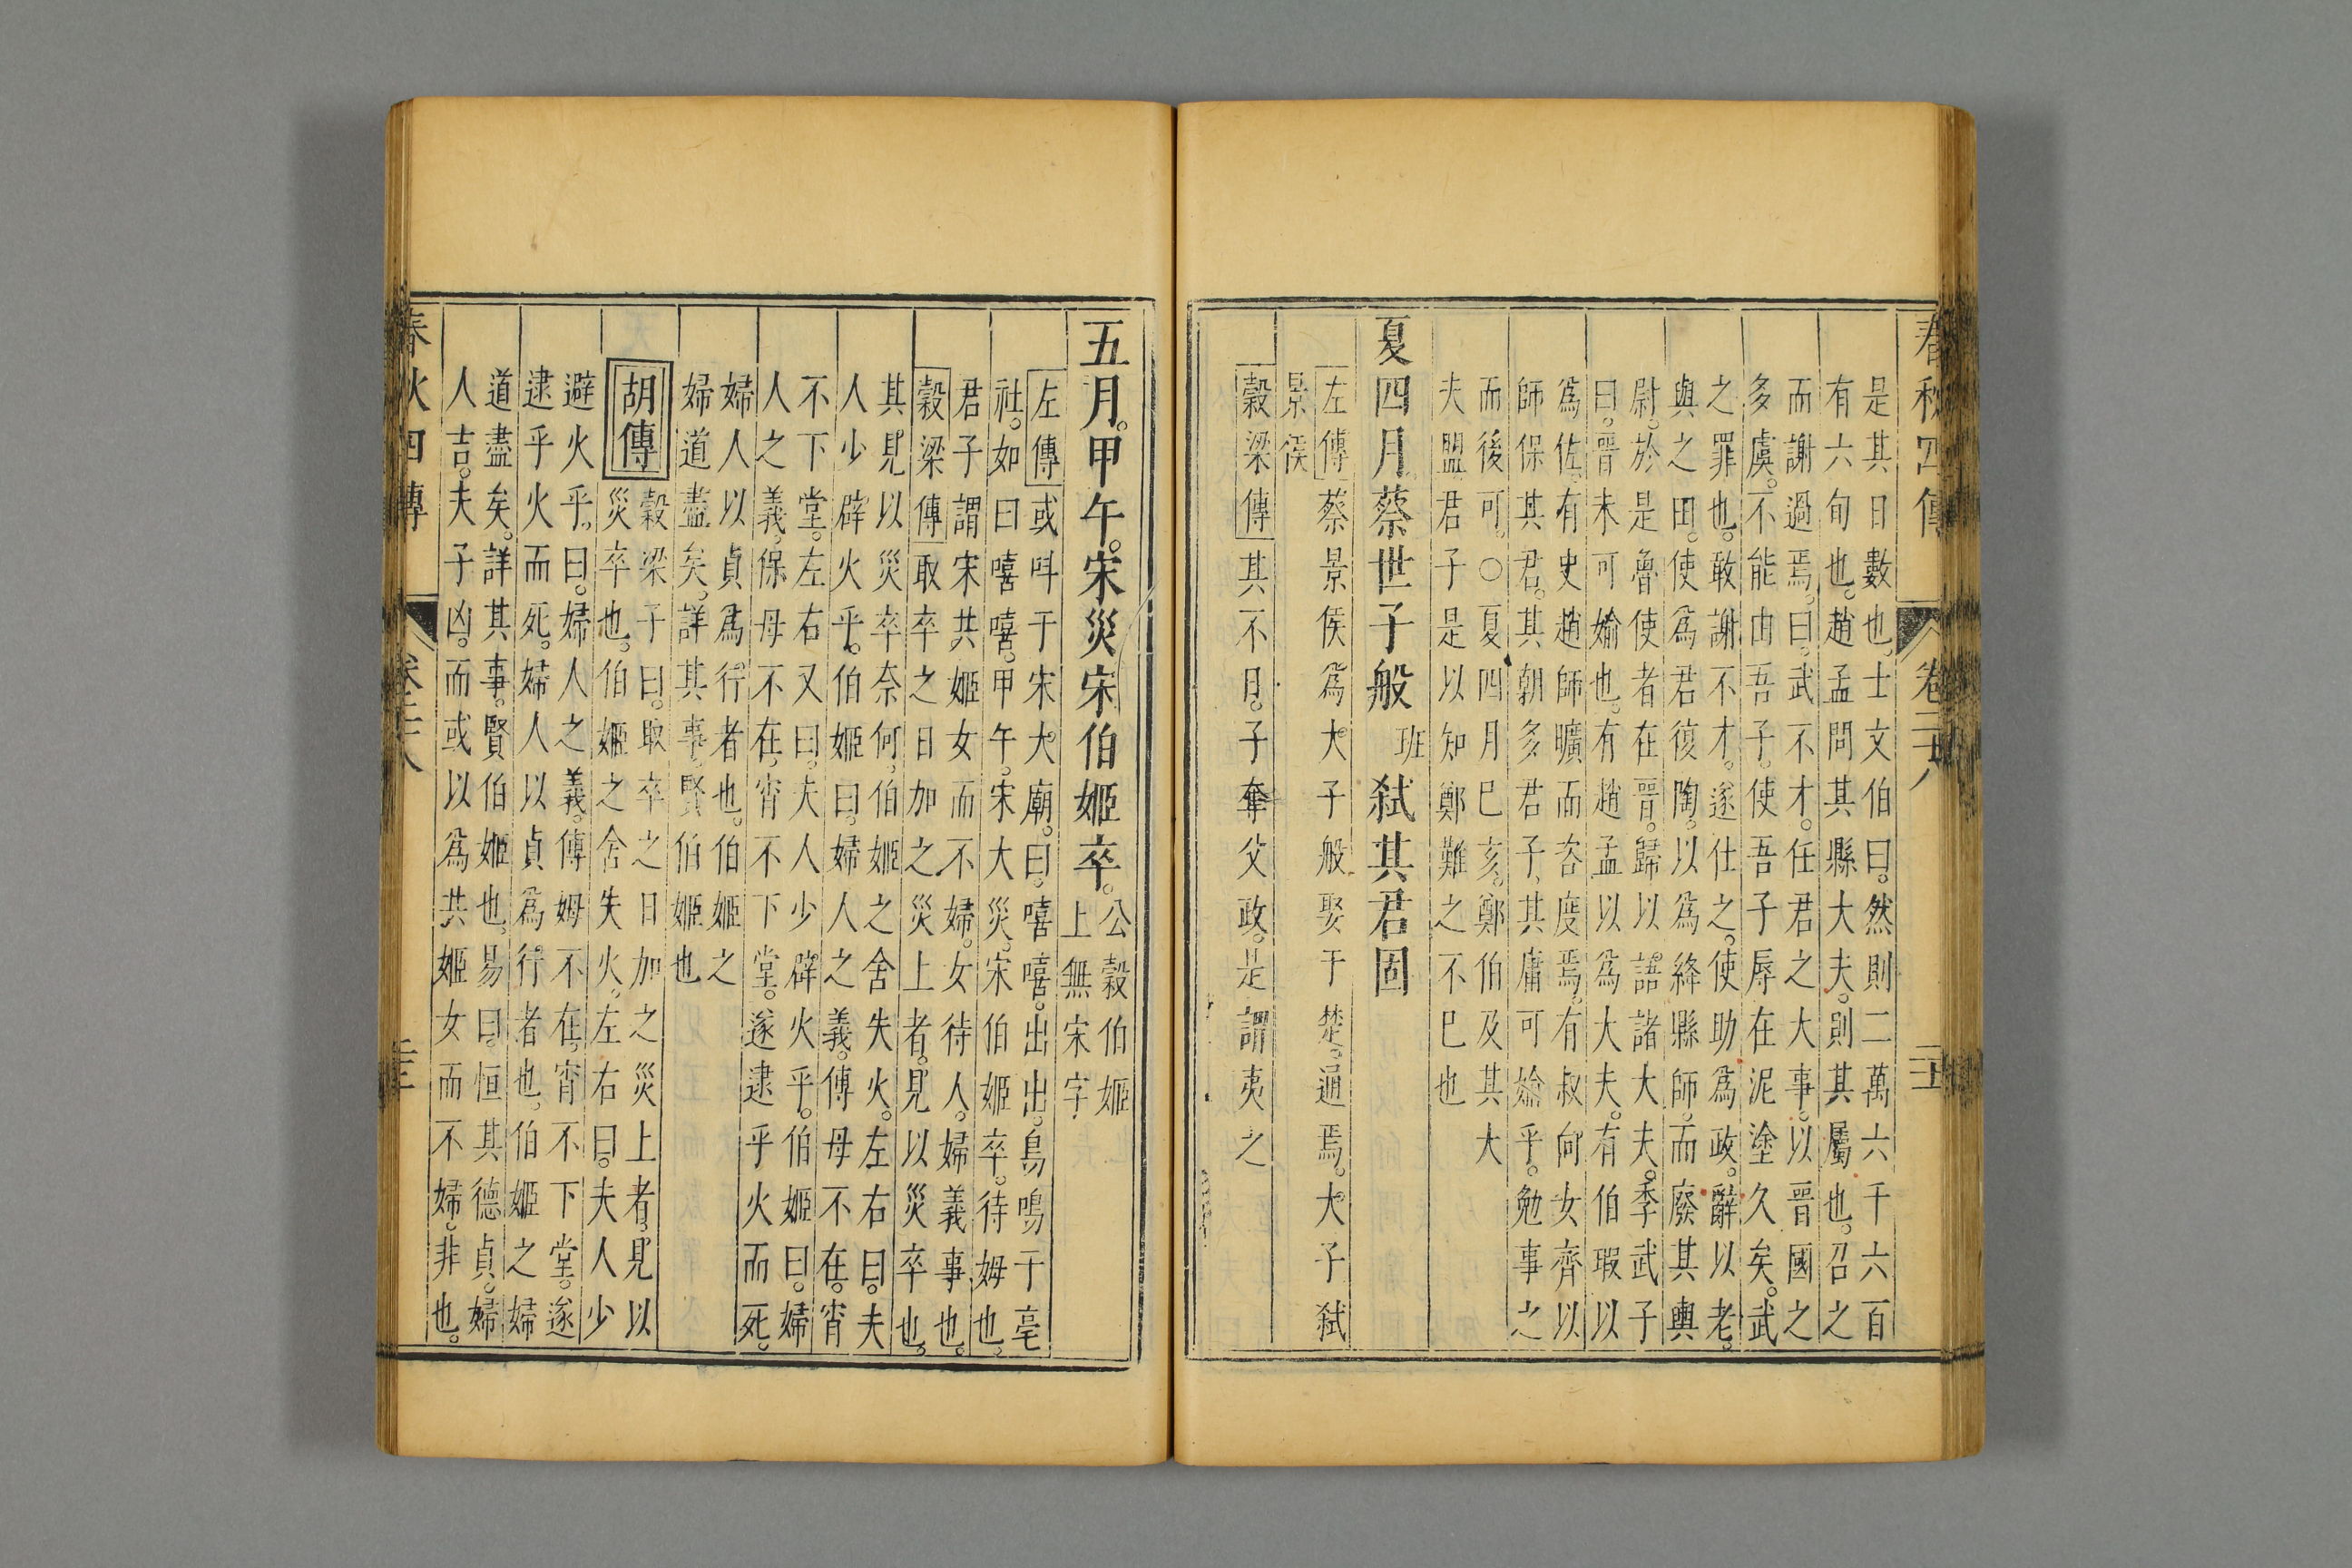 春秋四傳 卷二十八
是其日數也。士文伯曰。然則二萬六千六百
有六旬也。趙孟問其縣大夫。則其屬也。召之
而謝過焉。曰。武不才。任君之大事。以晉國之
多虞。不能由吾子。使吾子辱在泥塗久矣。武
之罪也。敢謝不才。遂仕之。使助爲政。辭以老。
與之田。使爲君復陶。以爲絳縣師。而廢其輿
尉。於是魯使者在晉。歸以語諸大夫。季武子
曰。晉未可媮也。有趙孟以爲大夫。有伯瑕以
爲佐。有史趙師曠而咨度焉。有叔向女齊以
師保其君。其朝多君子。其庸可媮乎。勉事之
而後可。○夏四月巳亥。鄭伯及其大
夫盟。君子是以知鄭難之不巳也
夏四月蔡世子般班弑其君固
左傳蔡景侯爲大子般娶于楚。通焉。大子弑
景侯
穀梁傳其不日。子奪父政。是謂夷之
五月。甲午。宋災宋伯姬卒。公穀伯姬
上無宋字
左傳或呌于宋大廟。曰。嘻嘻。出出。鳥鳴于亳
社。如曰嘻嘻。甲午。宋大災。宋伯姬卒。待姆也。
君子謂宋共姬女而不婦。女待人。婦義事也。
穀梁傳取卒之日加之災上者。見以災卒也。
其見以災卒奈何。伯姬之舍失火。左右曰。夫
人少辟火乎。伯姬曰。婦人之義。傅母不在。宵
不下堂。左右又曰。夫人少辟火乎。伯姬曰。婦
人之義。保母不在。宵不下堂。遂逮乎火而死。
婦人以貞爲行者也。伯姬之
婦道盡矣。詳其事。賢伯姬也
胡傳穀梁子曰。取卒之日加之災上者。見以
災卒也。伯姬之舍失火。左右曰。夫人少
避火乎。曰。婦人之義。傅姆不在。宵不下堂。遂
逮乎火而死。婦人以貞爲行者也。伯姬之婦
道盡矣。詳其事。賢伯姬也。易曰。恒其德貞。婦
人吉。夫子凶。而或以爲共姬女而不婦。非也。
春秋四傳